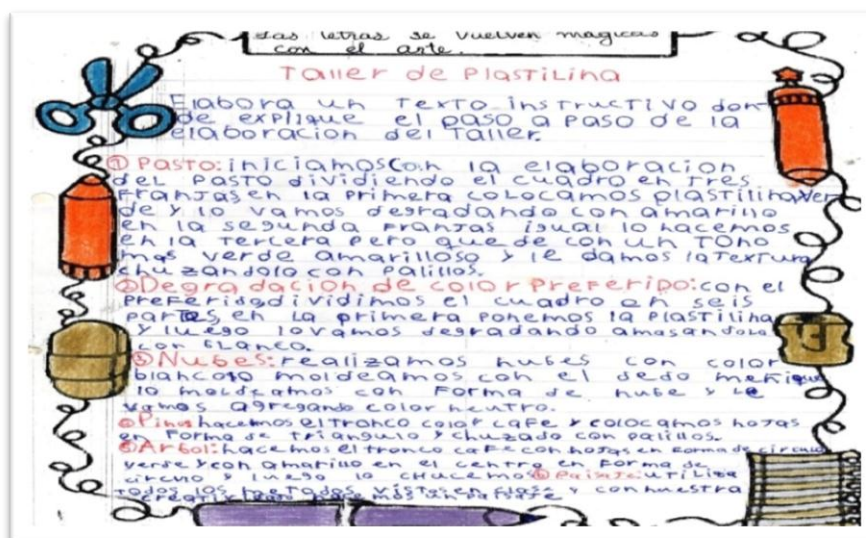 Las letras se vuelven mágicas
con el arte.
Taller de Plastilina
Elabora un Texto instructivo don
de explique el paso a paso de la
elaboracion del Taller.
① Pasto: iniciamos con la elaboracion
del pasto dividiendo el cuadro en tres
Franjas en la primera colocamos plastilina ver
de y lo vamos degradando con amarillo
en la segunda Franjas igual lo hacemos
en la Tercera pero quede con un Tono
mas verde amarilloso y le damos la Textura
chuzandolo con palillos.
② Degradacion de color Preferido: con el
preferido dividimos el cuadro en seis
partes en la primera ponemos la plastilina
y luego lo vamos degradando amasandola
con blanco.
③ Nubes: realizamos nubes con color
blanco lo moldeamos con el dedo meñique
lo moldeamos con Forma de nube y le
vamos agregando color neutro.
④ Pino: hacemos el tronco color cafe y colocamos hojas
en Forma de triangulo y chuzado con palillos.
⑤ Arbol: hacemos el tronco cafe con hojas en forma de circulo
verde y con amarillo en el centro en forma de
circulo y luego lo chucemos ⑥ Paisaje: utiliza
todos los metodos vistos en clase y con nuestra